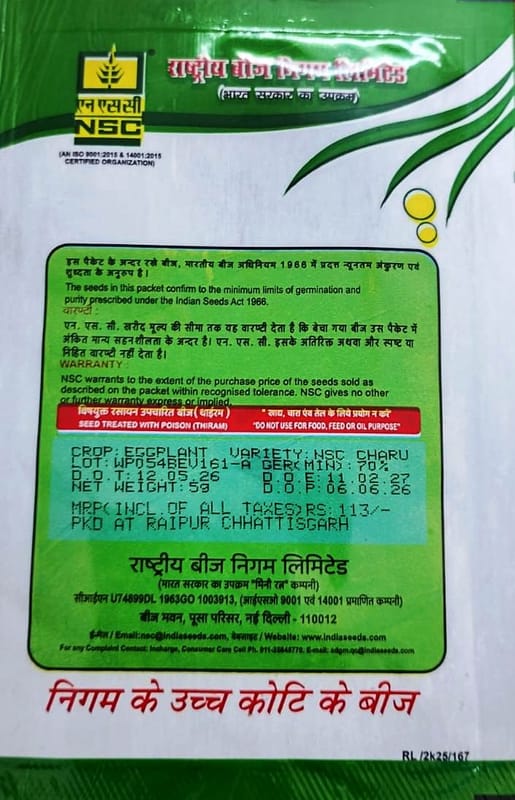 राष्ट्रीय बीज निगम लिमिटेड
(भारत सरकार का उपक्रम)
एन एस सी
NSC
(AN ISO 9001:2015 & 14001:2015
CERTIFIED ORGANIZATION)
इस पैकेट के अन्दर रखे बीज, भारतीय बीज अधिनियम 1966 में प्रदत्त न्यूनतम अंकुरण एवं
शुध्दता के अनुरुप है।
The seeds in this packet confirm to the minimum limits of germination and
purity prescribed under the Indian Seeds Act 1966.
वारण्टी :
एन. एस. सी. खरीद मूल्य की सीमा तक यह वारण्टी देता है कि बेचा गया बीज उस पैकेट में
अंकित मान्य सहनशीलता के अन्दर है। एन. एस. सी. इसके अतिरिक्त अथवा और स्पष्ट या
निहित वारण्टी नहीं देता है।
WARRANTY :
NSC warrants to the extent of the purchase price of the seeds sold as
described on the packet within recognised tolerance. NSC gives no other
or further warranty express or implied.
विषयुक्त रसायन उपचारित बीज (थाईरम) " खाद्य, चारा एंव तेल के लिये प्रयोग न करें"
SEED TREATED WITH POISON (THIRAM) "DO NOT USE FOR FOOD, FEED OR OIL PURPOSE"
CROP:EGGPLANT VARIETY:NSC CHARU
LOT:WP054BEV161-A GER(MIN):70%
D.O.T:12.05.26 D.O.E:11.02.27
NET WEIGHT:5g D.O.P:06.06.26
MRP(INCL.OF ALL TAXES)RS:113/-
PKD AT RAIPUR CHHATTISGARH
राष्ट्रीय बीज निगम लिमिटेड
(भारत सरकार का उपक्रम "मिनी रत्न" कम्पनी)
सीआईएन U74899DL 1963GO 1003913, (आईएसओ 9001 एवं 14001 प्रमाणित कम्पनी)
बीज भवन, पूसा परिसर, नई दिल्ली - 110012
ई-मेल / Email:nsc@indiaseeds.com, वेबसाइट / Website: www.indiaseeds.com
For any Complaint Contact: Incharge, Consumer Care Cell Ph. E-mail: sdgm.qc@indiaseeds.com
निगम के उच्च कोटि के बीज
RL /2k25/167